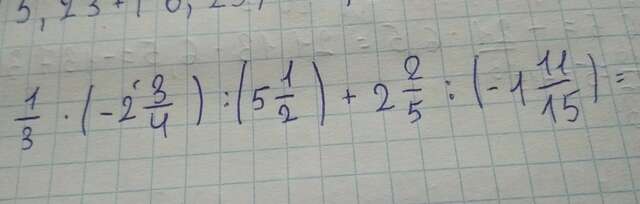 1/3 · (-2 3/4) : (5 1/2) + 2 2/5 : (-1 11/15) =